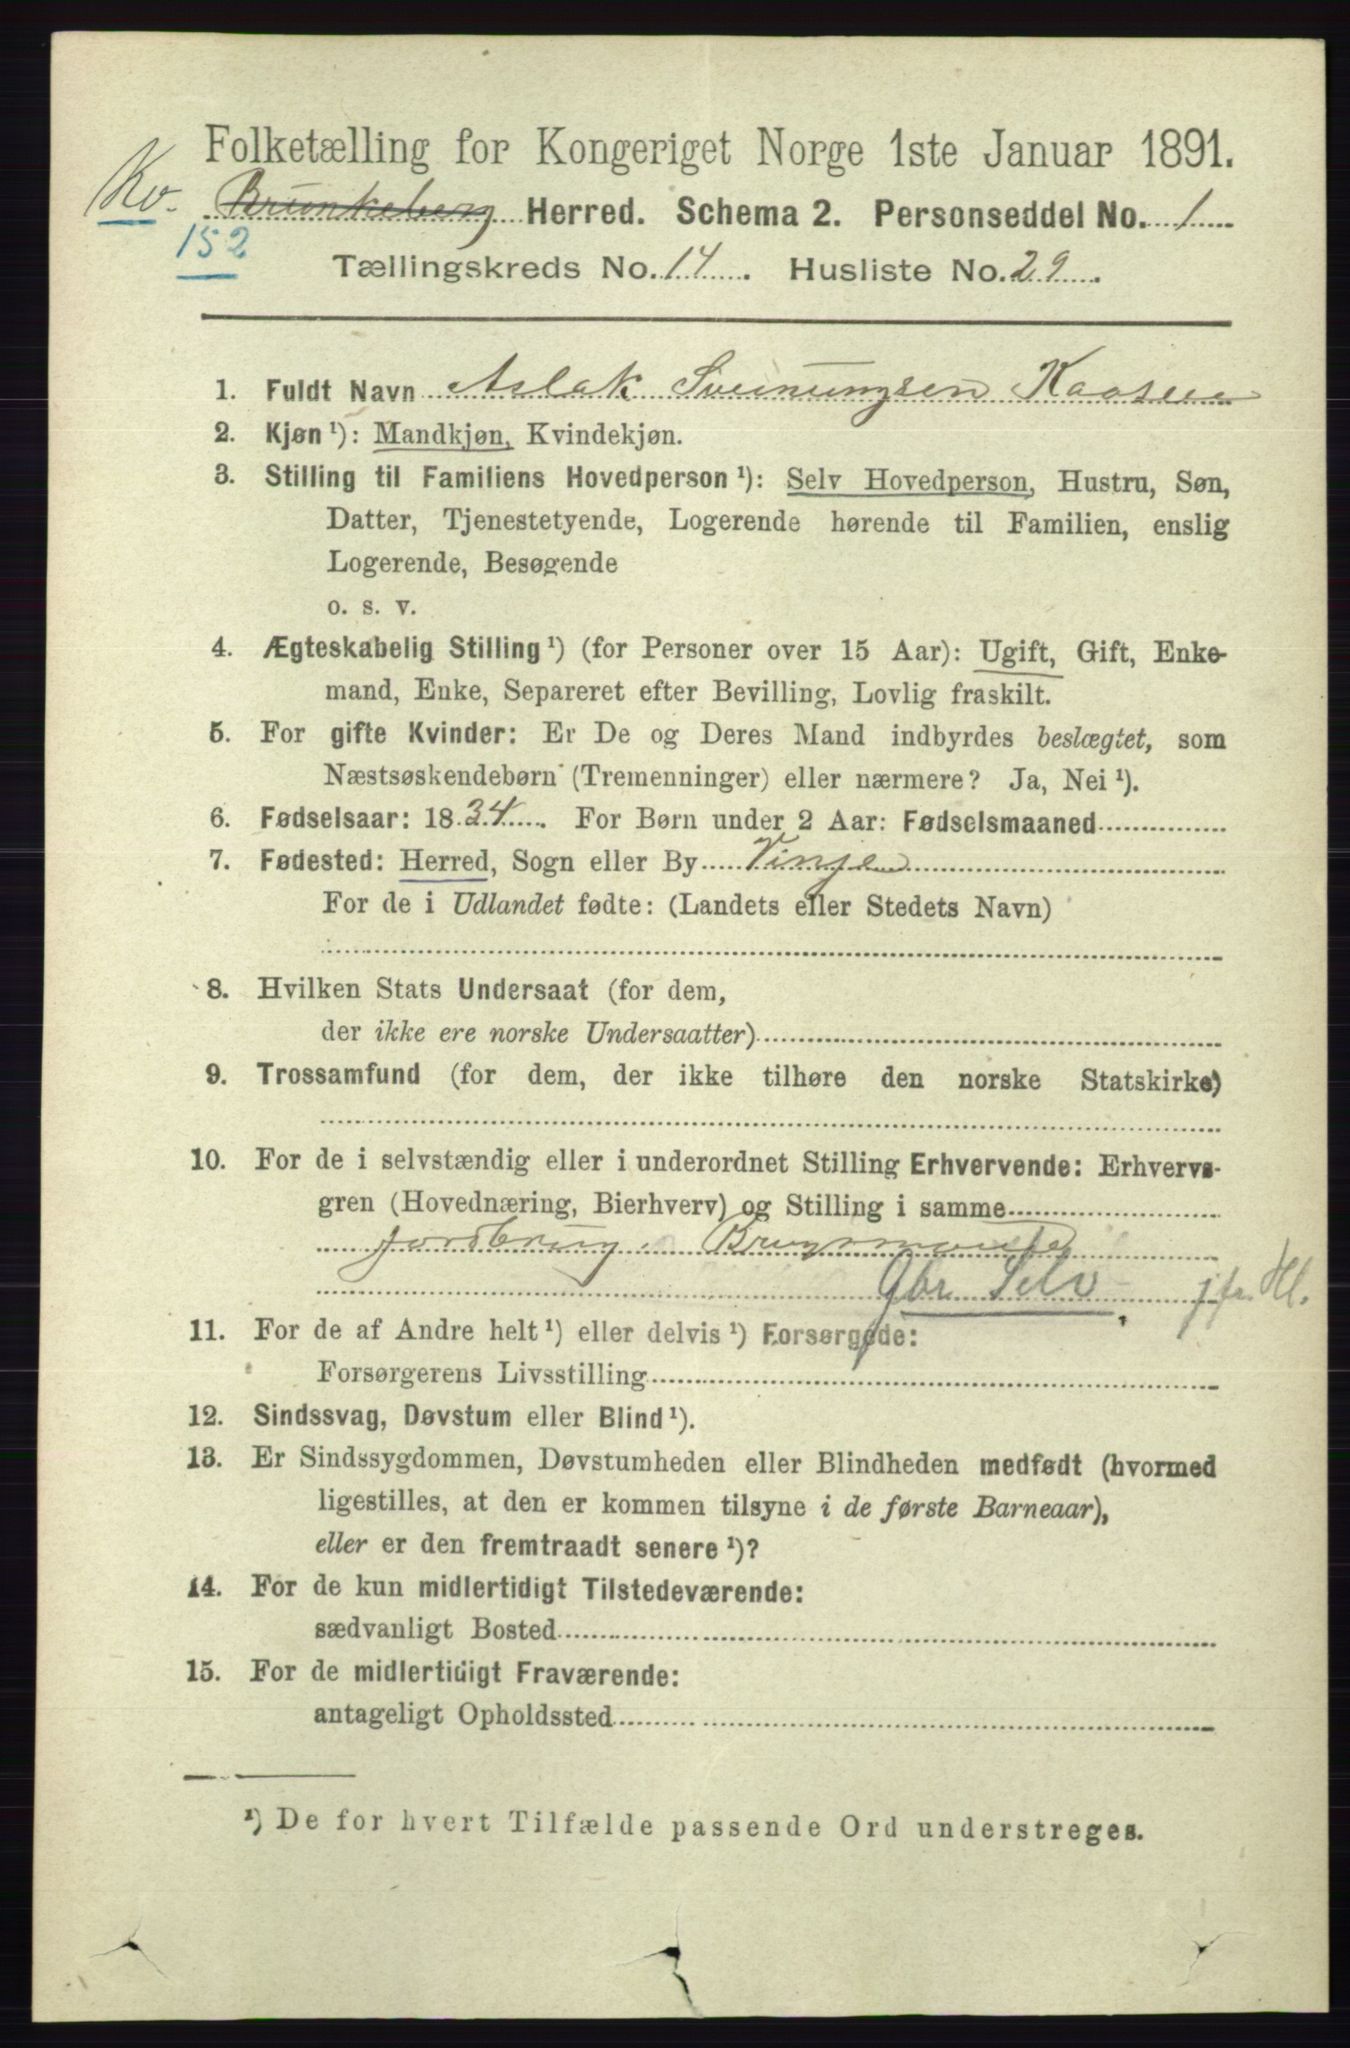 Folketælling for Kongeriget Norge 1ste Januar 1891.
Kv. Brunkeberg Herred. Schema 2. Personseddel No. 1
152
Tællingskreds No. 14. Husliste No. 29.
1. Fuldt Navn Aslak Sveinungsen Kaasene
2. Kjøn ¹): Mandkjøn, Kvindekjøn.
3. Stilling til Familiens Hovedperson ¹): Selv Hovedperson, Hustru, Søn,
Datter, Tjenestetyende, Logerende hørende til Familien, enslig
Logerende, Besøgende
o. s. v.
4. Ægteskabelig Stilling ¹) (for Personer over 15 Aar): Ugift, Gift, Enke-
mand, Enke, Separeret efter Bevilling, Lovlig fraskilt.
5. For gifte Kvinder: Er De og Deres Mand indbyrdes beslægtet, som
Næstsøskendebørn (Tremenninger) eller nærmere? Ja, Nei ¹).
6. Fødselsaar: 1834. For Børn under 2 Aar: Fødselsmaaned
7. Fødested: Herred, Sogn eller By Vinje
For de i Udlandet fødte: (Landets eller Stedets Navn)
8. Hvilken Stats Undersaat (for dem,
der ikke ere norske Undersaatter)
9. Trossamfund (for dem, der ikke tilhøre den norske Statskirke)
10. For de i selvstændig eller i underordnet Stilling Erhvervende: Erhvervs-
gren (Hovednæring, Bierhverv) og Stilling i samme
Jordbrug
Gbr. Selv jfr. Hl.
11. For de af Andre helt ¹) eller delvis ¹) Forsørgede:
Forsørgerens Livsstilling
12. Sindssvag, Døvstum eller Blind ¹).
13. Er Sindssygdommen, Døvstumheden eller Blindheden medfødt (hvormed
ligestilles, at den er kommen tilsyne i de første Barneaar),
eller er den fremtraadt senere ¹)?
14. For de kun midlertidigt Tilstedeværende:
sædvanligt Bosted
15. For de midlertidigt Fraværende:
antageligt Opholdssted
¹) De for hvert Tilfælde passende Ord understreges.